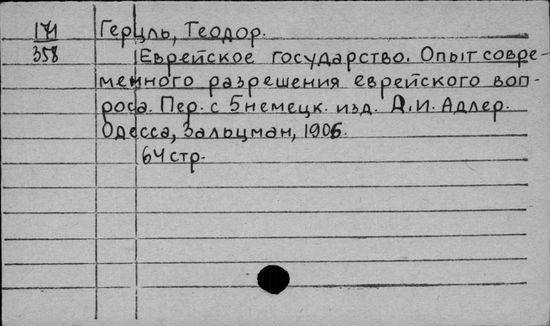 171 Герцль, Теодор.
358 Еврейское государство. Опыт совре-
менного разрешения еврейского воп-
роса. Пер. с 5 немецк. изд. Д.И. Адлер.
Одесса, Зальцман, 1906.
64 стр.